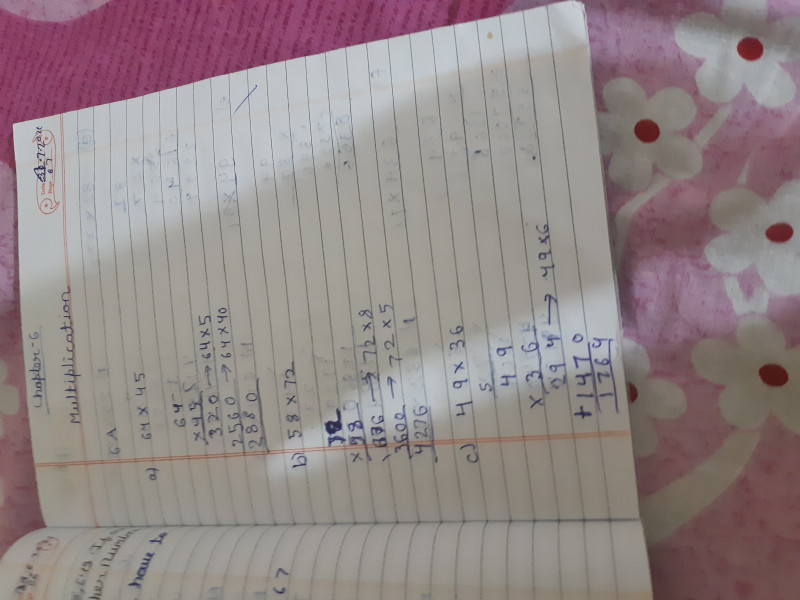 Chapter-6
Multiplication
6 A
a) 64 × 45
64
×45
320 → 64 × 5
2560 → 64 × 40
2880
b) 58 × 72
72
×58
→ 72 × 8
3600 → 72 × 5
4276
c) 49 × 36
5
49
×36
294 → 49×6
+1470
1764
67
have to